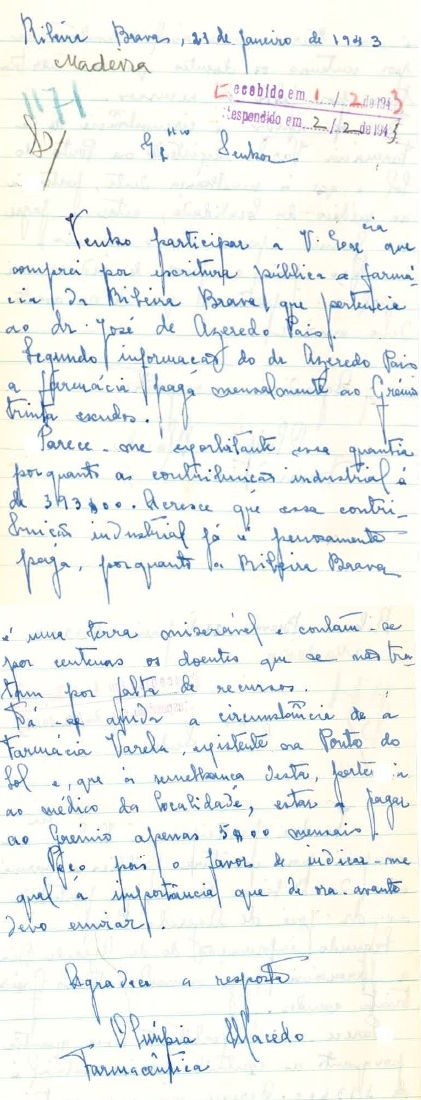 Ribeira Brava, 21 de Janeiro de 1943
Madeira
1171
Recebido em 1/2 de 1943
Respondido em 2/2 de 1943
Exmo Senhor
Venho participar a V. Excia que
comprei por escritura pública a farmá-
cia da Ribeira Brava, que pertencia
ao dr. José de Azeredo Pais.
Segundo informação do dr Azeredo Pais
a farmácia paga mensalmente ao Grémio
trinta escudos.
Parece-me exorbitante essa quantia
porquanto as contribuição industrial é
de 393$00. Acresce que essa contri-
buição industrial já é penosamente
paga, porquanto a Ribeira Brava
é uma terra miserável e contam-se
por centenas os doentes que se não tra-
tam por falta de recursos.
Dá-se ainda a circunstância de a
Farmácia Varela, existente na Ponta do
Sol e, que à semelhança desta, pertencia
ao médico da localidade, estar a pagar
ao Grémio apenas 5$00 mensais.
Peço pois o favor de indicar-me
qual a importância que de ora-avante
devo enviar.
Agradece a resposta
Olímpia Macedo
Farmacêutica